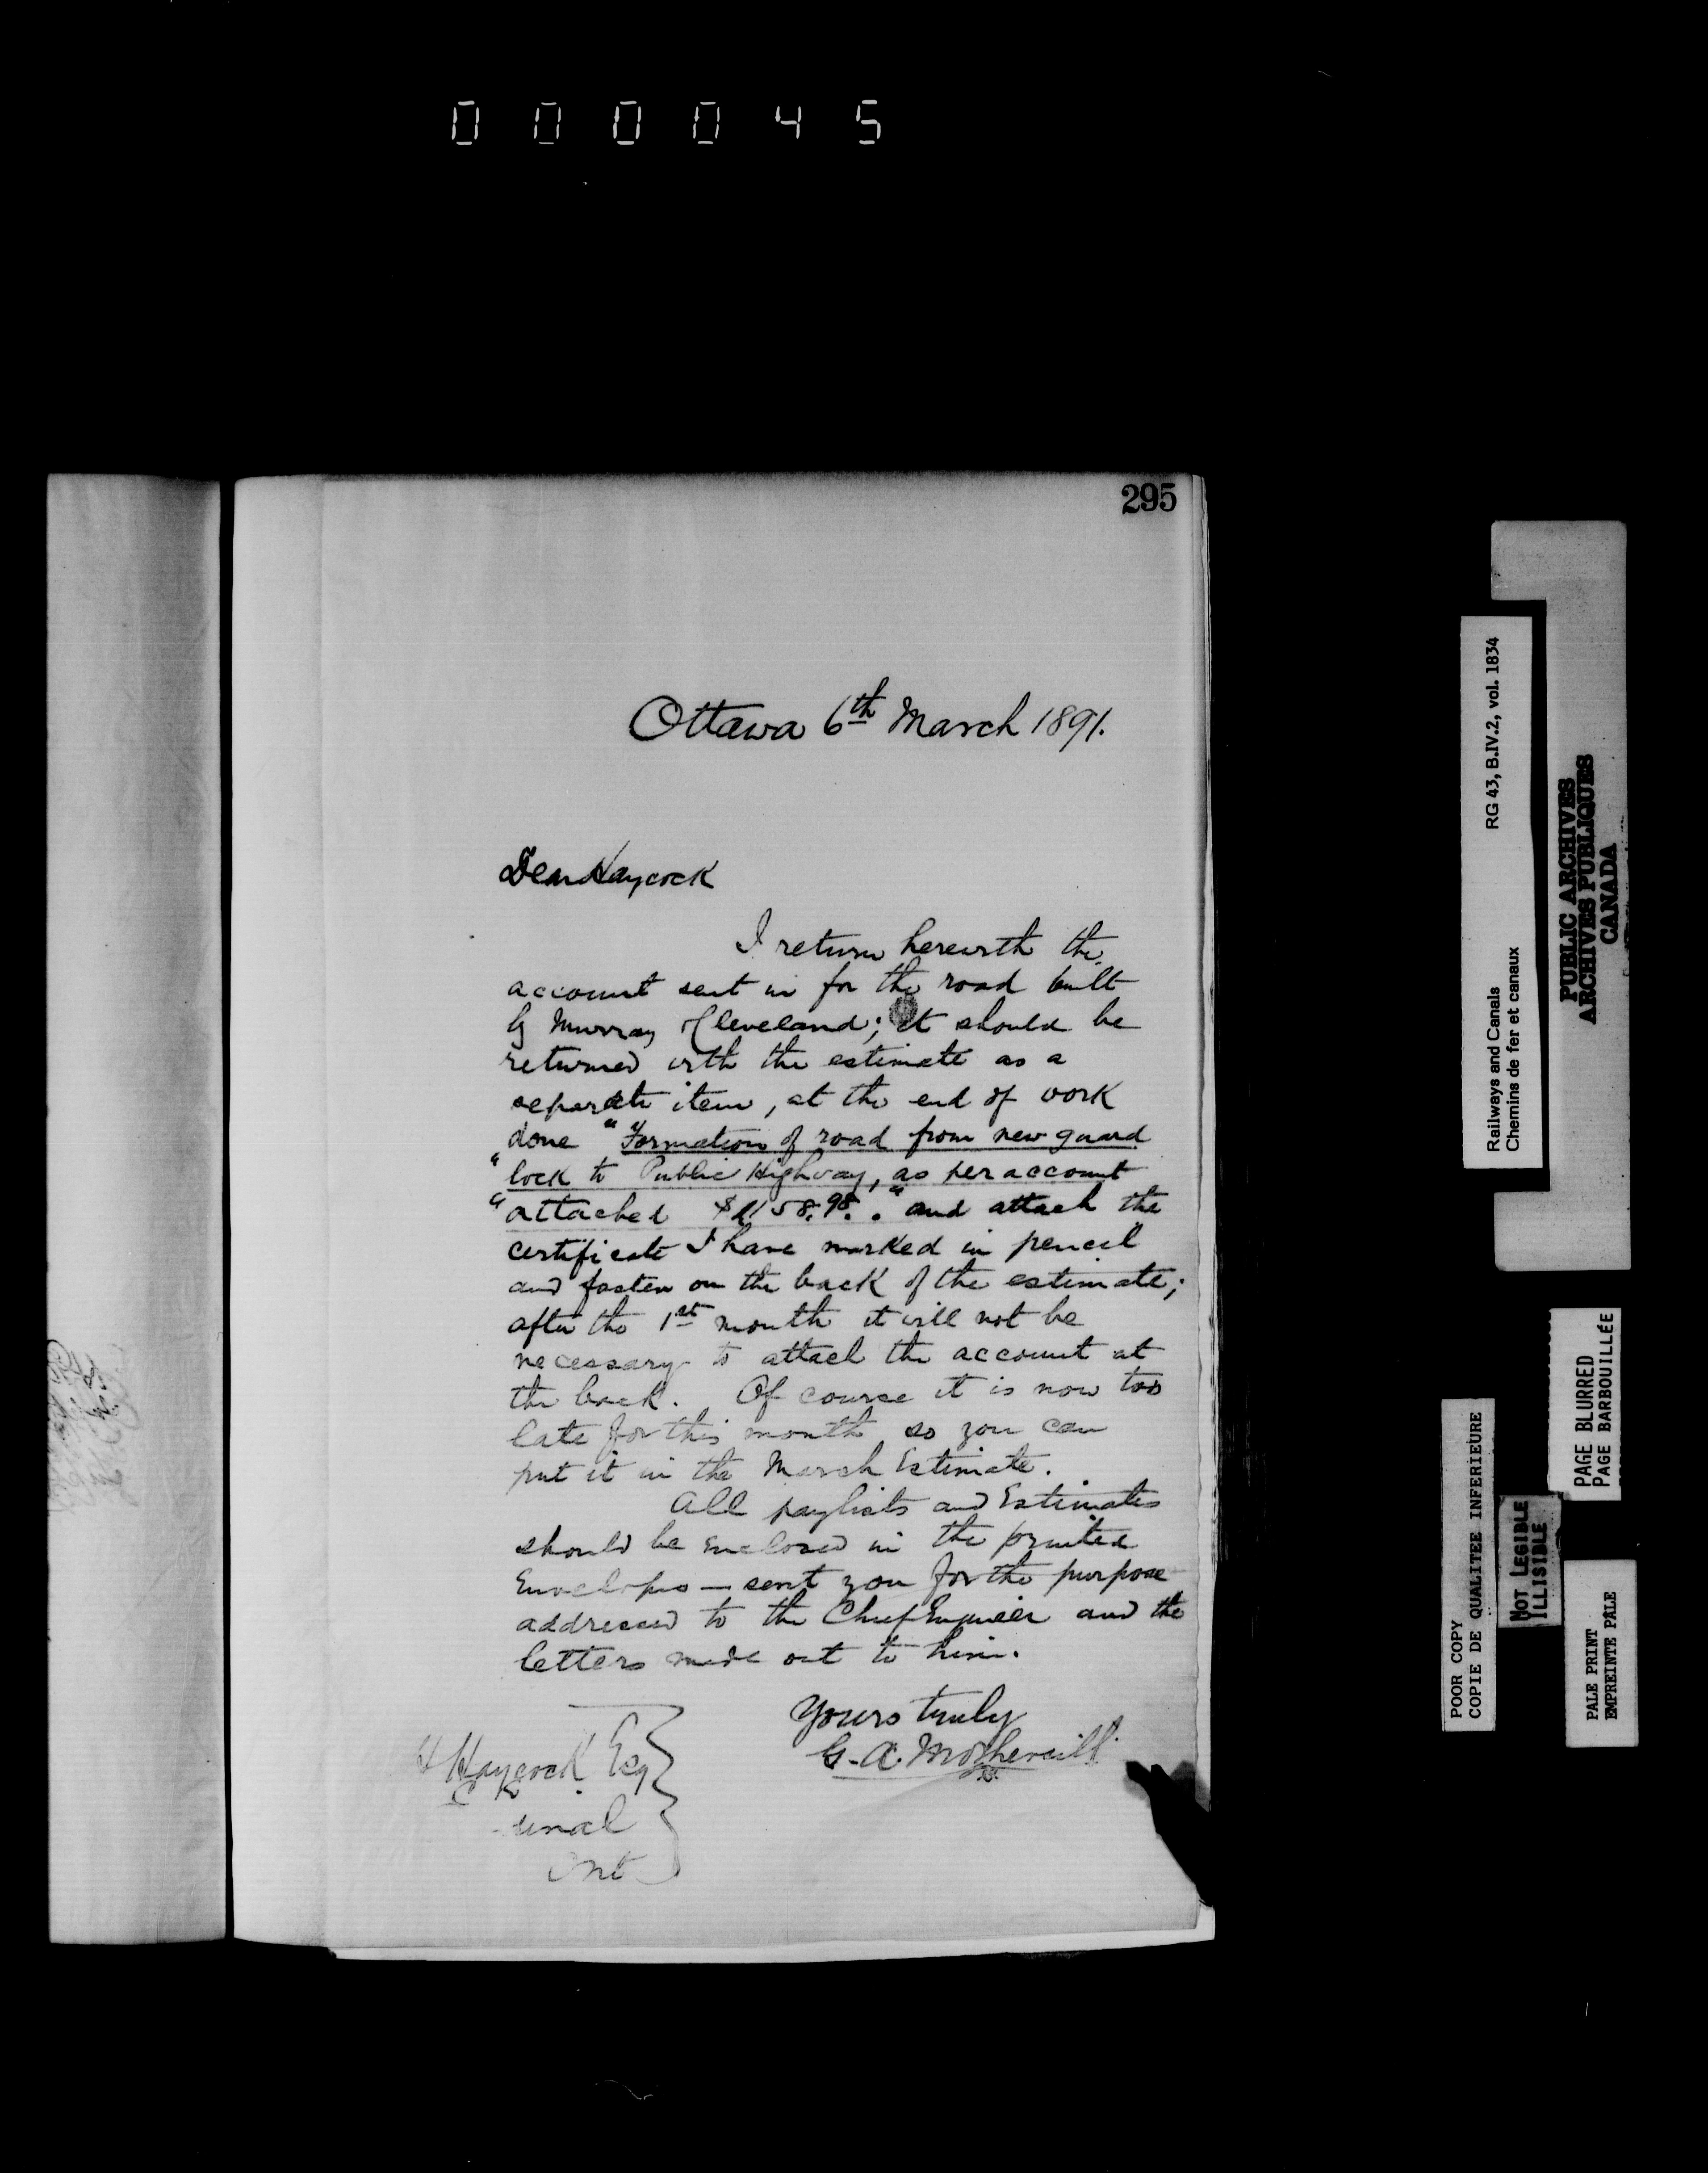 000045
295
Ottawa 6th March 1891.
Dear Haycock
I return herewith the
account sent in for the road built
by Murray & Cleveland; it should be
returned with the estimate as a
separate item, at the end of work
done "Formation of road from new guard
"lock to Public Highway, as per account
"attached $1158.98." and attach the
certificate I have marked in pencil
and fasten on the back of the estimate;
after the 1st month it will not be
necessary to attach the account at
the back. Of course it is now too
late for this month so you can
put it in the March Estimate.
All paylists and Estimates
should be enclosed in the printed
Envelopes — sent you for the purpose
addressed to the Chief Engineer and the
letters made out to him.
Yours truly
G. A. Mothersill
H Haycock Esq
C. E.
Ont
Railways and Canals RG 43, B.IV.2, vol. 1834
Chemins de fer et canaux
PUBLIC ARCHIVES
ARCHIVES PUBLIQUES
CANADA
PAGE BLURRED
PAGE BARBOUILLÉE
POOR COPY
COPIE DE QUALITEE INFERIEURE
NOT LEGIBLE
ILLISIBLE
PALE PRINT
EMPREINTE PÂLE